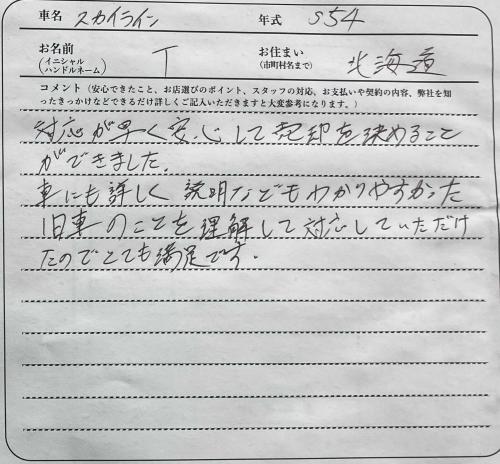 車名 スカイライン 年式 S54
お名前 (イニシャル ハンドルネーム) T お住まい (市町村名まで) 北海道
コメント（安心できたこと、お店選びのポイント、スタッフの対応、お支払いや契約の内容、弊社を知
ったきっかけなどできるだけ詳しくご記入いただきますと大変参考になります。）
対応が早く安心して売却を決めること
ができました.
車にも詳しく 説明などもわかりやすかった
旧車のことを理解して対応していただけ
たのでとても満足です.